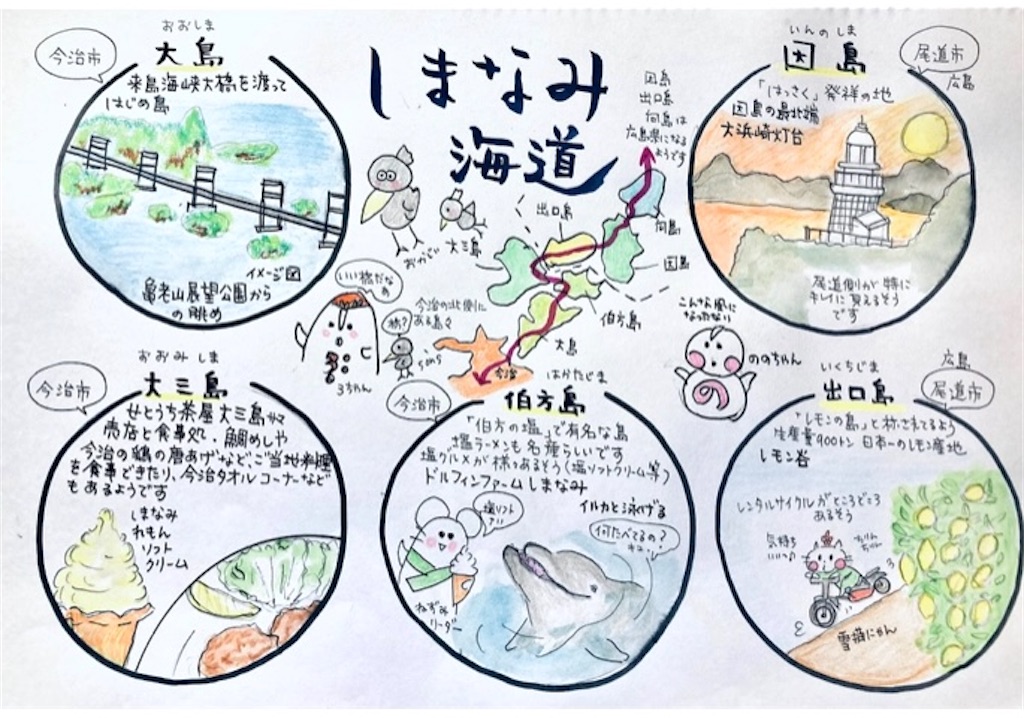 しまなみ
海道
今治市
おおしま
大島
来島海峡大橋を渡って
はじめ島
イメージ図
亀老山展望公園から
の眺め
因島
出口島
向島は
広島県になる
ようです
出口島
向島
大三島
因島
伯方島
大島
今治
今治の北側に
ある島々
おがらい
いい橋だな
橋?
3ちゃん
こんな風に
なったない
ののちゃん
の
いんのしま
因島
尾道市
広島
「はっさく」発祥の地
因島の最北端
大浜崎灯台
尾道側が特に
キレイに見えるそう
です
今治市
おおみしま
大三島
せとうち茶屋大三島は
売店と食事処、鯛めしや
今治の鶏の唐あげなど、ご当地料理
を食事できたり、今治タオルコーナーなど
もあるようです
しまなみ
れもん
ソフト
クリーム
今治市
はかたじま
伯方島
「伯方の塩」で有名な島
塩ラーメンも名産らしいです
塩グルメが様々あるそう(塩ソフトクリーム等)
ドルフィンファームしまなみ
イルカと泳げる
塩ソフト
何たべてるの?
ねずみ
リーダー
いくちじま
出口島
広島
尾道市
「レモンの島」と称されてるよう
生産量900トン 日本一のレモン産地
レモン谷
レンタルサイクルがところどころ
あるそう
気持ち
いいっ♪
ちりん
ちりん
雪猫にゃん